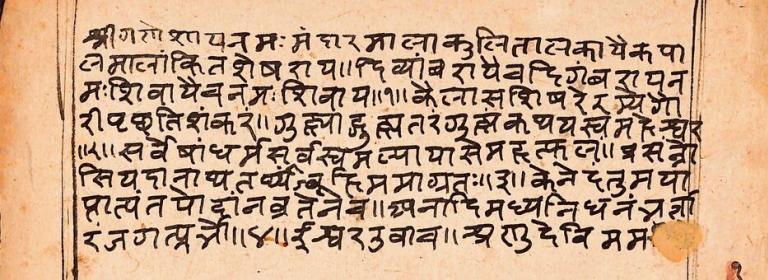 श्रीगणेशायनमः मंदारमालाकुलितालकायैकपा
लमालांकितशेषराय॥दिव्यांबरायैचदिगंबरायन
मःशिवायैचनमःशिवाय॥१॥कैलासशिषरेरम्येगौ
रीपृछतिशंकरं॥गुह्याद्गुह्यतरंगुह्यकथयस्वमहेश्वर
॥२॥सर्वेषांधर्मसर्वस्वमल्पायासंमहत्फलं॥प्रसन्नो
सियदानाथतथ्यंब्रूहिममाग्रतः॥३॥केनेदतुमया
प्राप्यतपोदानव्रतेनच॥अनादिमध्यनिधनंभर्त्ता
रंजगत्प्रभो॥४॥ईश्वरउवाच॥श्रणुदेविमम